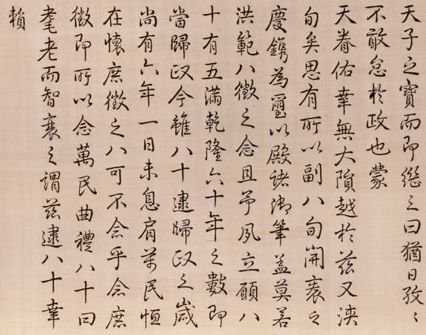 天子之寶而即繼之曰猶日孜〻
不敢怠於政也蒙
天眷佑幸無大隕越於茲又浹
旬矣思有所以副八旬開袠之
慶鐫為璽以殿諸御筆蓋莫若
洪範八徵之念且予夙立願八
十有五滿乾隆六十年之數即
當歸政今雖八十逮歸政之歲
尚有六年一日未息肩萬民恒
在懷庶徵之八可不念乎念庶
徵即所以念萬民曲禮八十曰
耄耄老而智衰之謂茲逮八十幸
賴